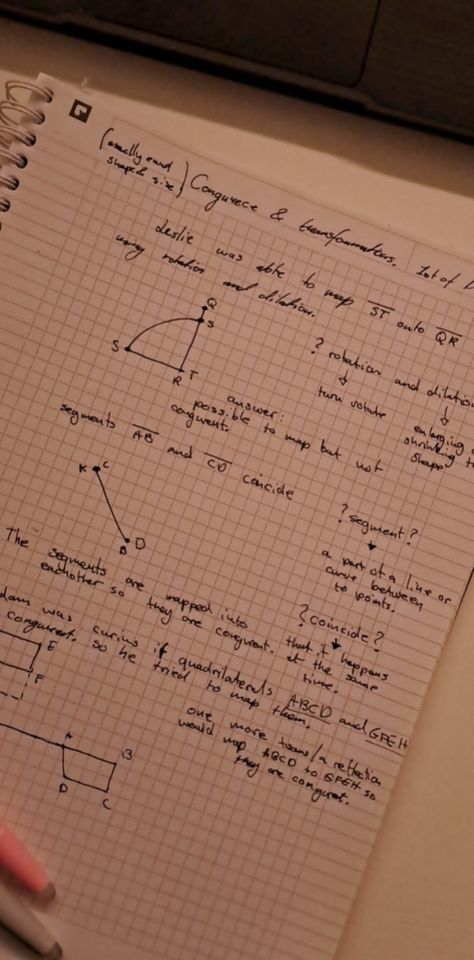 (exactly
shape & size) Congurece & transformations.
Leslie was able to map ST onto QR
using rotation and dilation.
Q
S
S
T
R
? rotation and dilation
turn rotate
enlarging
shrinking
shape
answer:
possible to map but not
congurent.
segments AB and CD coincide
C
B D
? segment?
a part of a line or
curve between
to points.
The segments are mapped into
eachother so they are congurent.
? coincide?
that it happens
at the same
time.
was curius if quadrilaterals ABCD and GFEH
congurent. so he tried to map them.
E
F
one more trans/a reflection
would map ABCD to GFEH so
they are congurent.
A
B
D
C